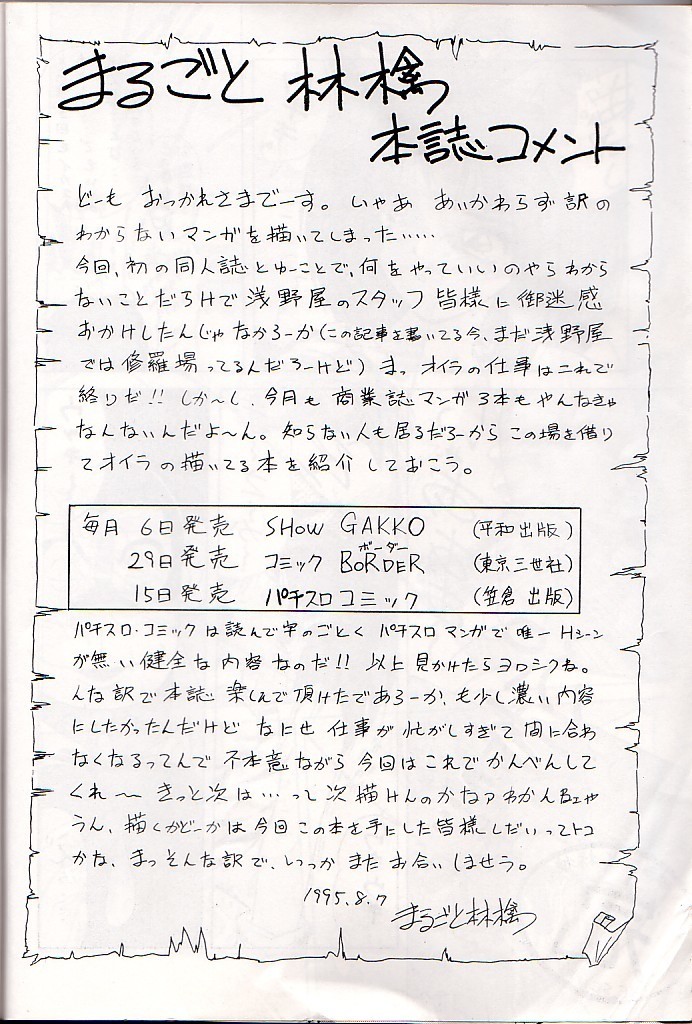 まるごと 林檎
本誌コメント
どーも おっかれさまでーす。いやあ あいかわらず 訳の
わからない マンガを 描いてしまった……
今回、初の 同人誌 とゆーことで、何をやっていいのやら わから
ないことだらけで 浅野屋のスタッフ 皆様に 御迷惑
おかけしたんじゃ なかろーか(この記事を書いてる今、まだ浅野屋
では 修羅場ってるんだろーけど) まっ オイラの仕事はこれで
終りだ!! しか〜し、今月も 商業誌マンガ 3本も やんなきゃ
なんないんだよ〜ん。知らない人も居るだろーから この場を借り
てオイラの 描いてる 本を 紹介 しておこう。
毎月 6日発売 SHOW GAKKO (平和出版)
29日発売 コミック BORDER (東京三世社)
ボーダー
15日発売 パチスロコミック (笠倉出版)
パチスロ・コミックは 読んで字のごとく パチスロ マンガで 唯一 Hシーン
が無い 健全な 内容なのだ!! 以上 見かけたら ヨロシクね。
んな訳で 本誌 楽しんで 頂けたであろーか、も少し濃い内容
にしたかったんだけど なにせ 仕事が 忙がしすぎて 間に合わ
なくなるってんで 不本意ながら 今回は これで かんべんして
くれ〜 きっと次は…って 次 描けんのかなァ わかん
うん、描くかどーかは 今回 この本を手にした 皆様しだいってトコ
かな、まっ そんな訳で、いつか また お会い しませう。
1995.8.7
まるごと林檎